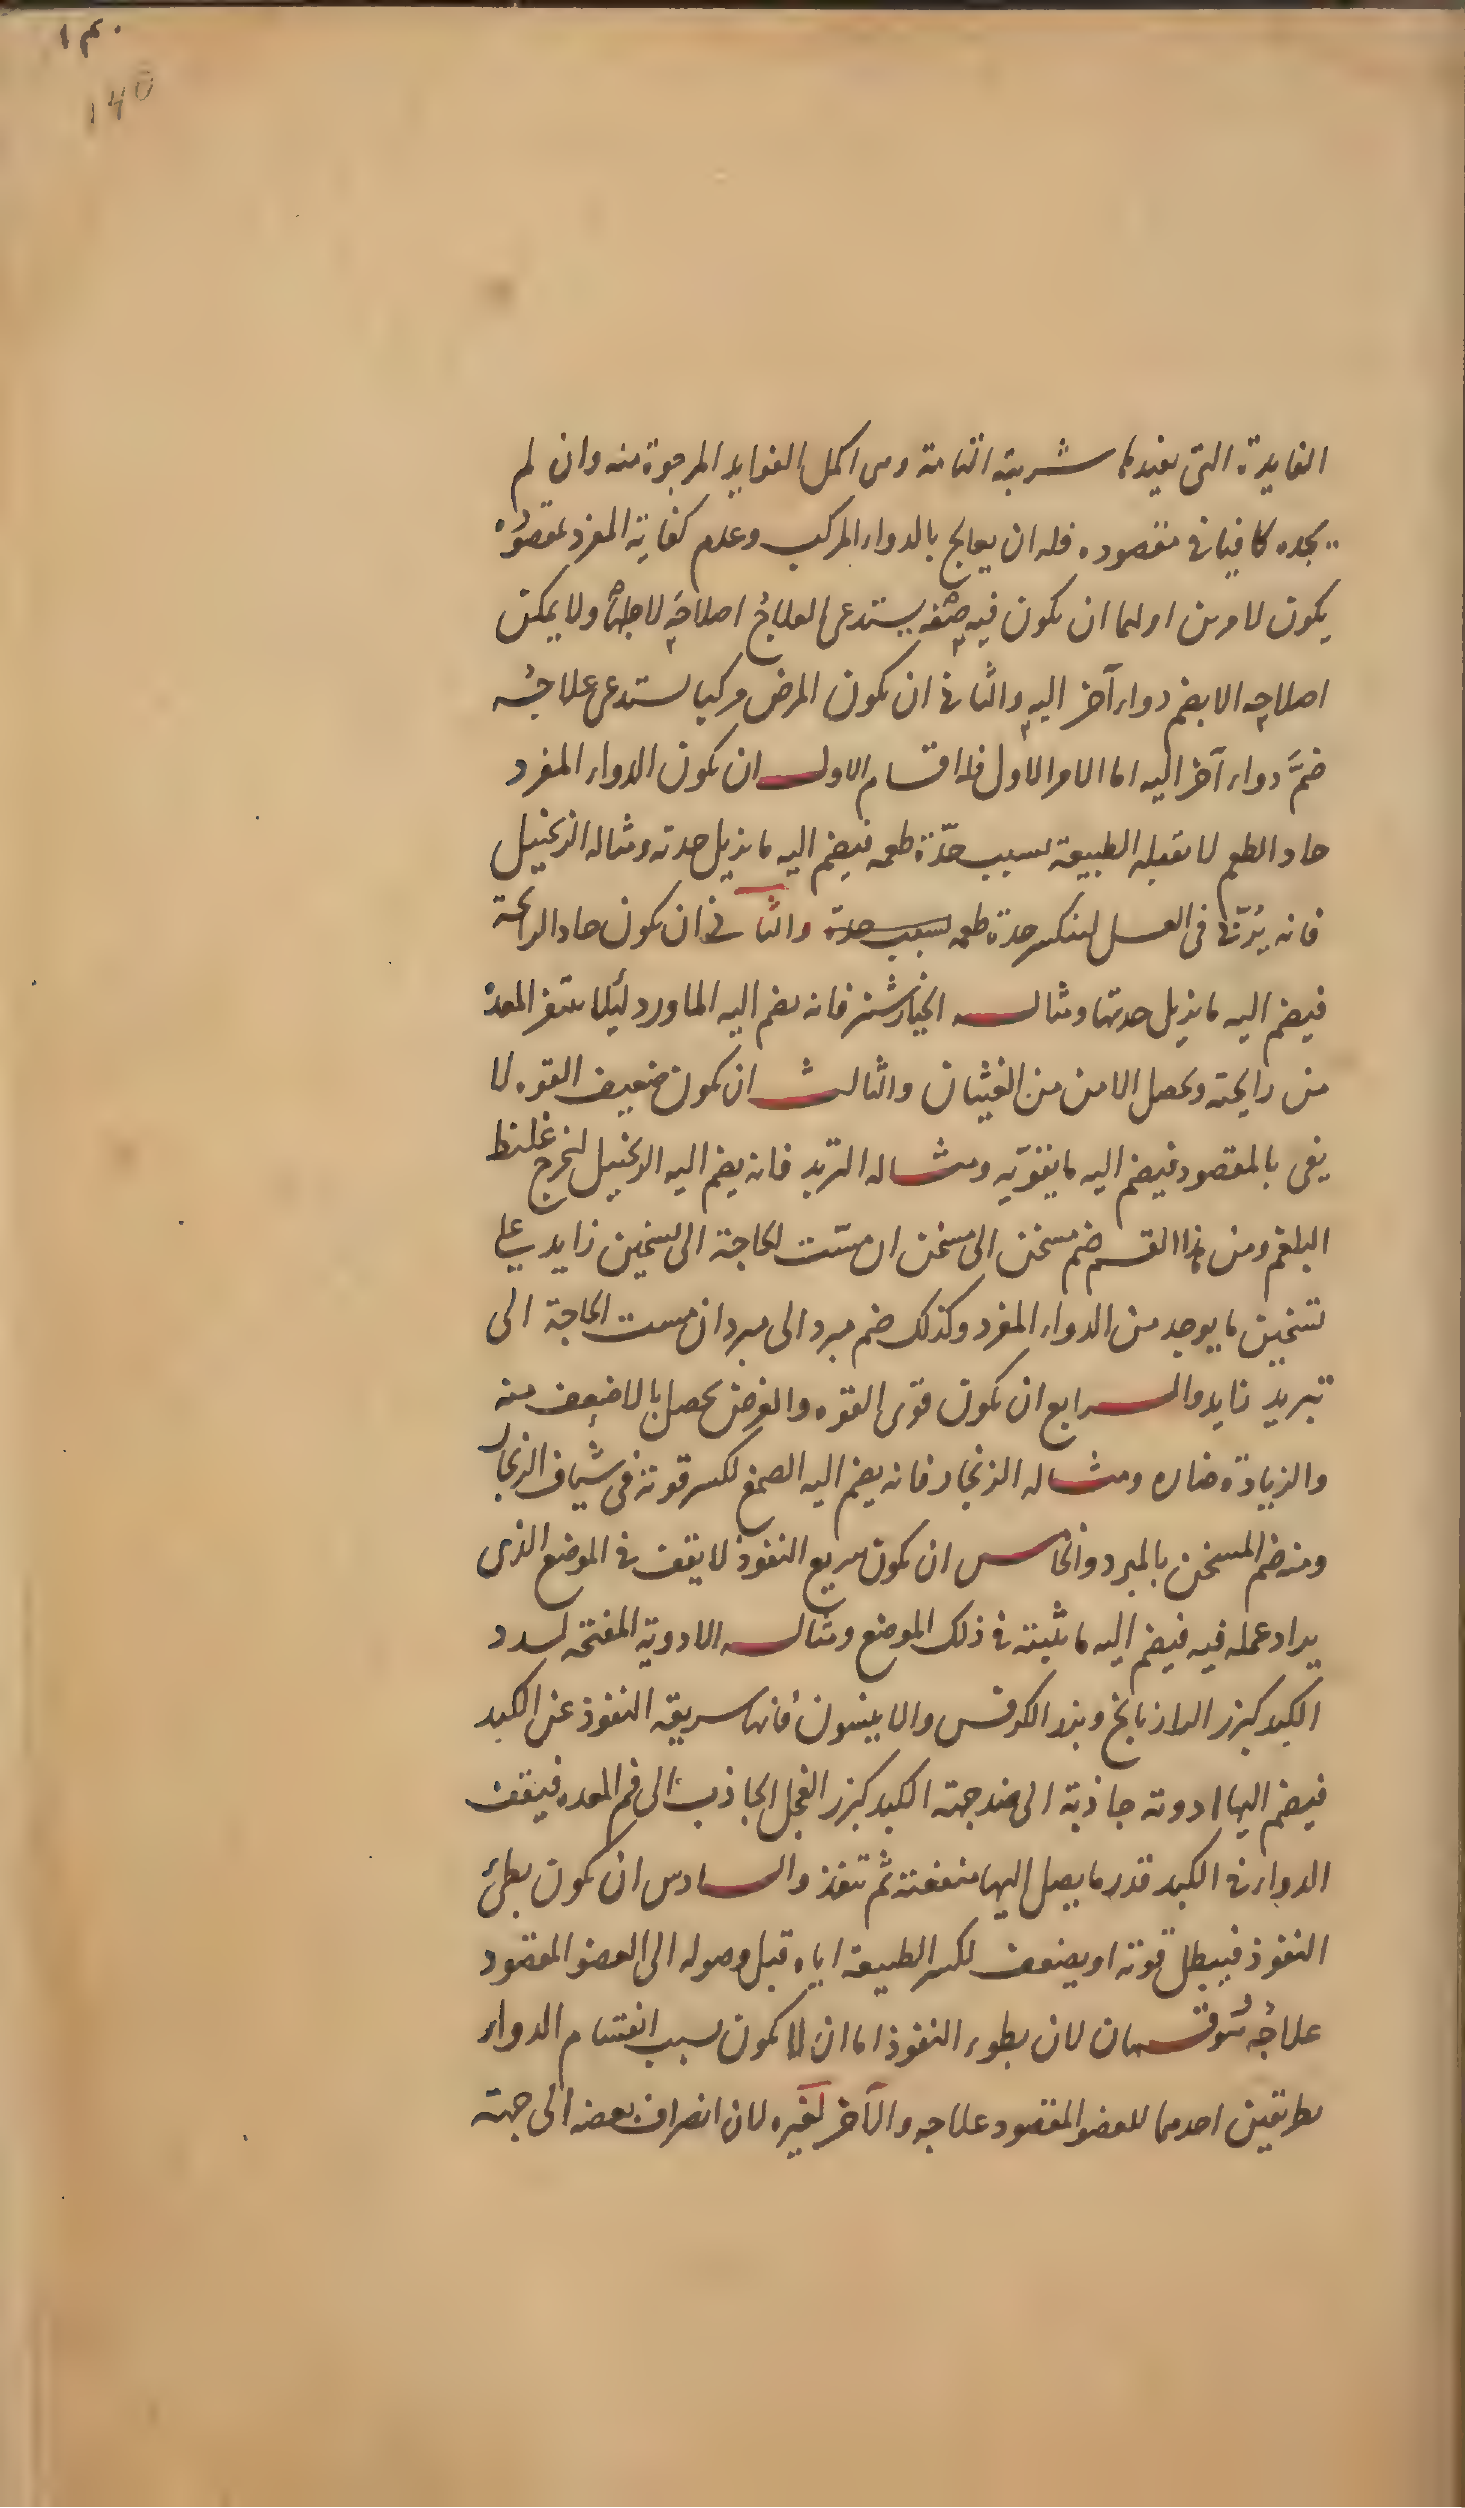 ١٤٠
١٤٥
الفايدة التى يفيدها شربته التامة وهى اكمل الفوايد المرجوة منه وان لم
يجده كافيا فى مقصوده فله ان يعالج بالدواء المركب وعدم كفاية المفرد لمقصوده
يكون لامرين اولهما ان يكون فيه صفة يستدعى العلاج اصلاحه لاجلها ولا يمكن
اصلاحه الا بضم دواء آخر اليه والثانى ان يكون المرض مركبا يستدعى علاجه
ضمَّ دواء آخر اليه اما الامر الاول فله اقسام الاول ان يكون الدواء المفرد
حاد الطعم لا تقبله الطبيعة بسبب حدّة طعمه فيضم اليه ما يزيل حدته ومثاله الزنجبيل
فانه يُربّى فى العسل لينكسر حدة طعمه بسبب حدة والثانى ان يكون حاد الرائحة
فيضم اليه ما يزيل حدتها ومثاله الخيارشنبر فانه يضم اليه الماورد لئلا يتنفر المعدة
من رايحته ويحصل الامن من الغثيان والثالث ان يكون ضعيف القوه لا
يفى بالمقصود فيضم اليه ما يقوّيه ومثاله التربد فانه يضم اليه الزنجبيل لنخرج غليظ
البلغم ومن هذا القسم ضم مسخن الى مسخن ان مسّت الحاجة الى تسخين زايد على
تسخين ما يوجد من الدواء المفرد وكذلك ضم مبرد الى مبرد ان مست الحاجة الى
تبريد زايد والرابع ان يكون قوى القوه والغرض يحصل بالاضعف منه
والزيادة ضاره ومثاله الزنجار فانه يضم اليه الصمغ لكسر قوته فى شياف الزنجار
ومنه ضم المسخن بالمبرد والخامس ان يكون سريع النفوذ لا يقف فى الموضع الذى
يراد عمله فيه فيضم اليه ما يثبته فى ذلك الموضع ومثاله الادوية المفتحة لسدد
الكبد كبزر الرازيانج وبزر الكرفس والانيسون فانها سريعة النفوذ عن الكبد
فيضم اليها ادوية جاذبة الى ضد جهة الكبد كبزر الفجل الجاذب الى فم المعده فيقف
الدواء فى الكبد قدر ما يصل اليها منفعته ثم تنفذ والسادس ان يكون بطئ
النفوذ فيبطل قوته او يضعف لكسر الطبيعة اياه قبل وصوله الى العضو المقصود
علاجُه وهو قسمان لان بطوء النفوذ اما ان لا يكون بسبب انقسام الدواء
بطريقين احدهما للعضو المقصود علاجه والآخر لغيره لان انصراف بعضه الى جهة